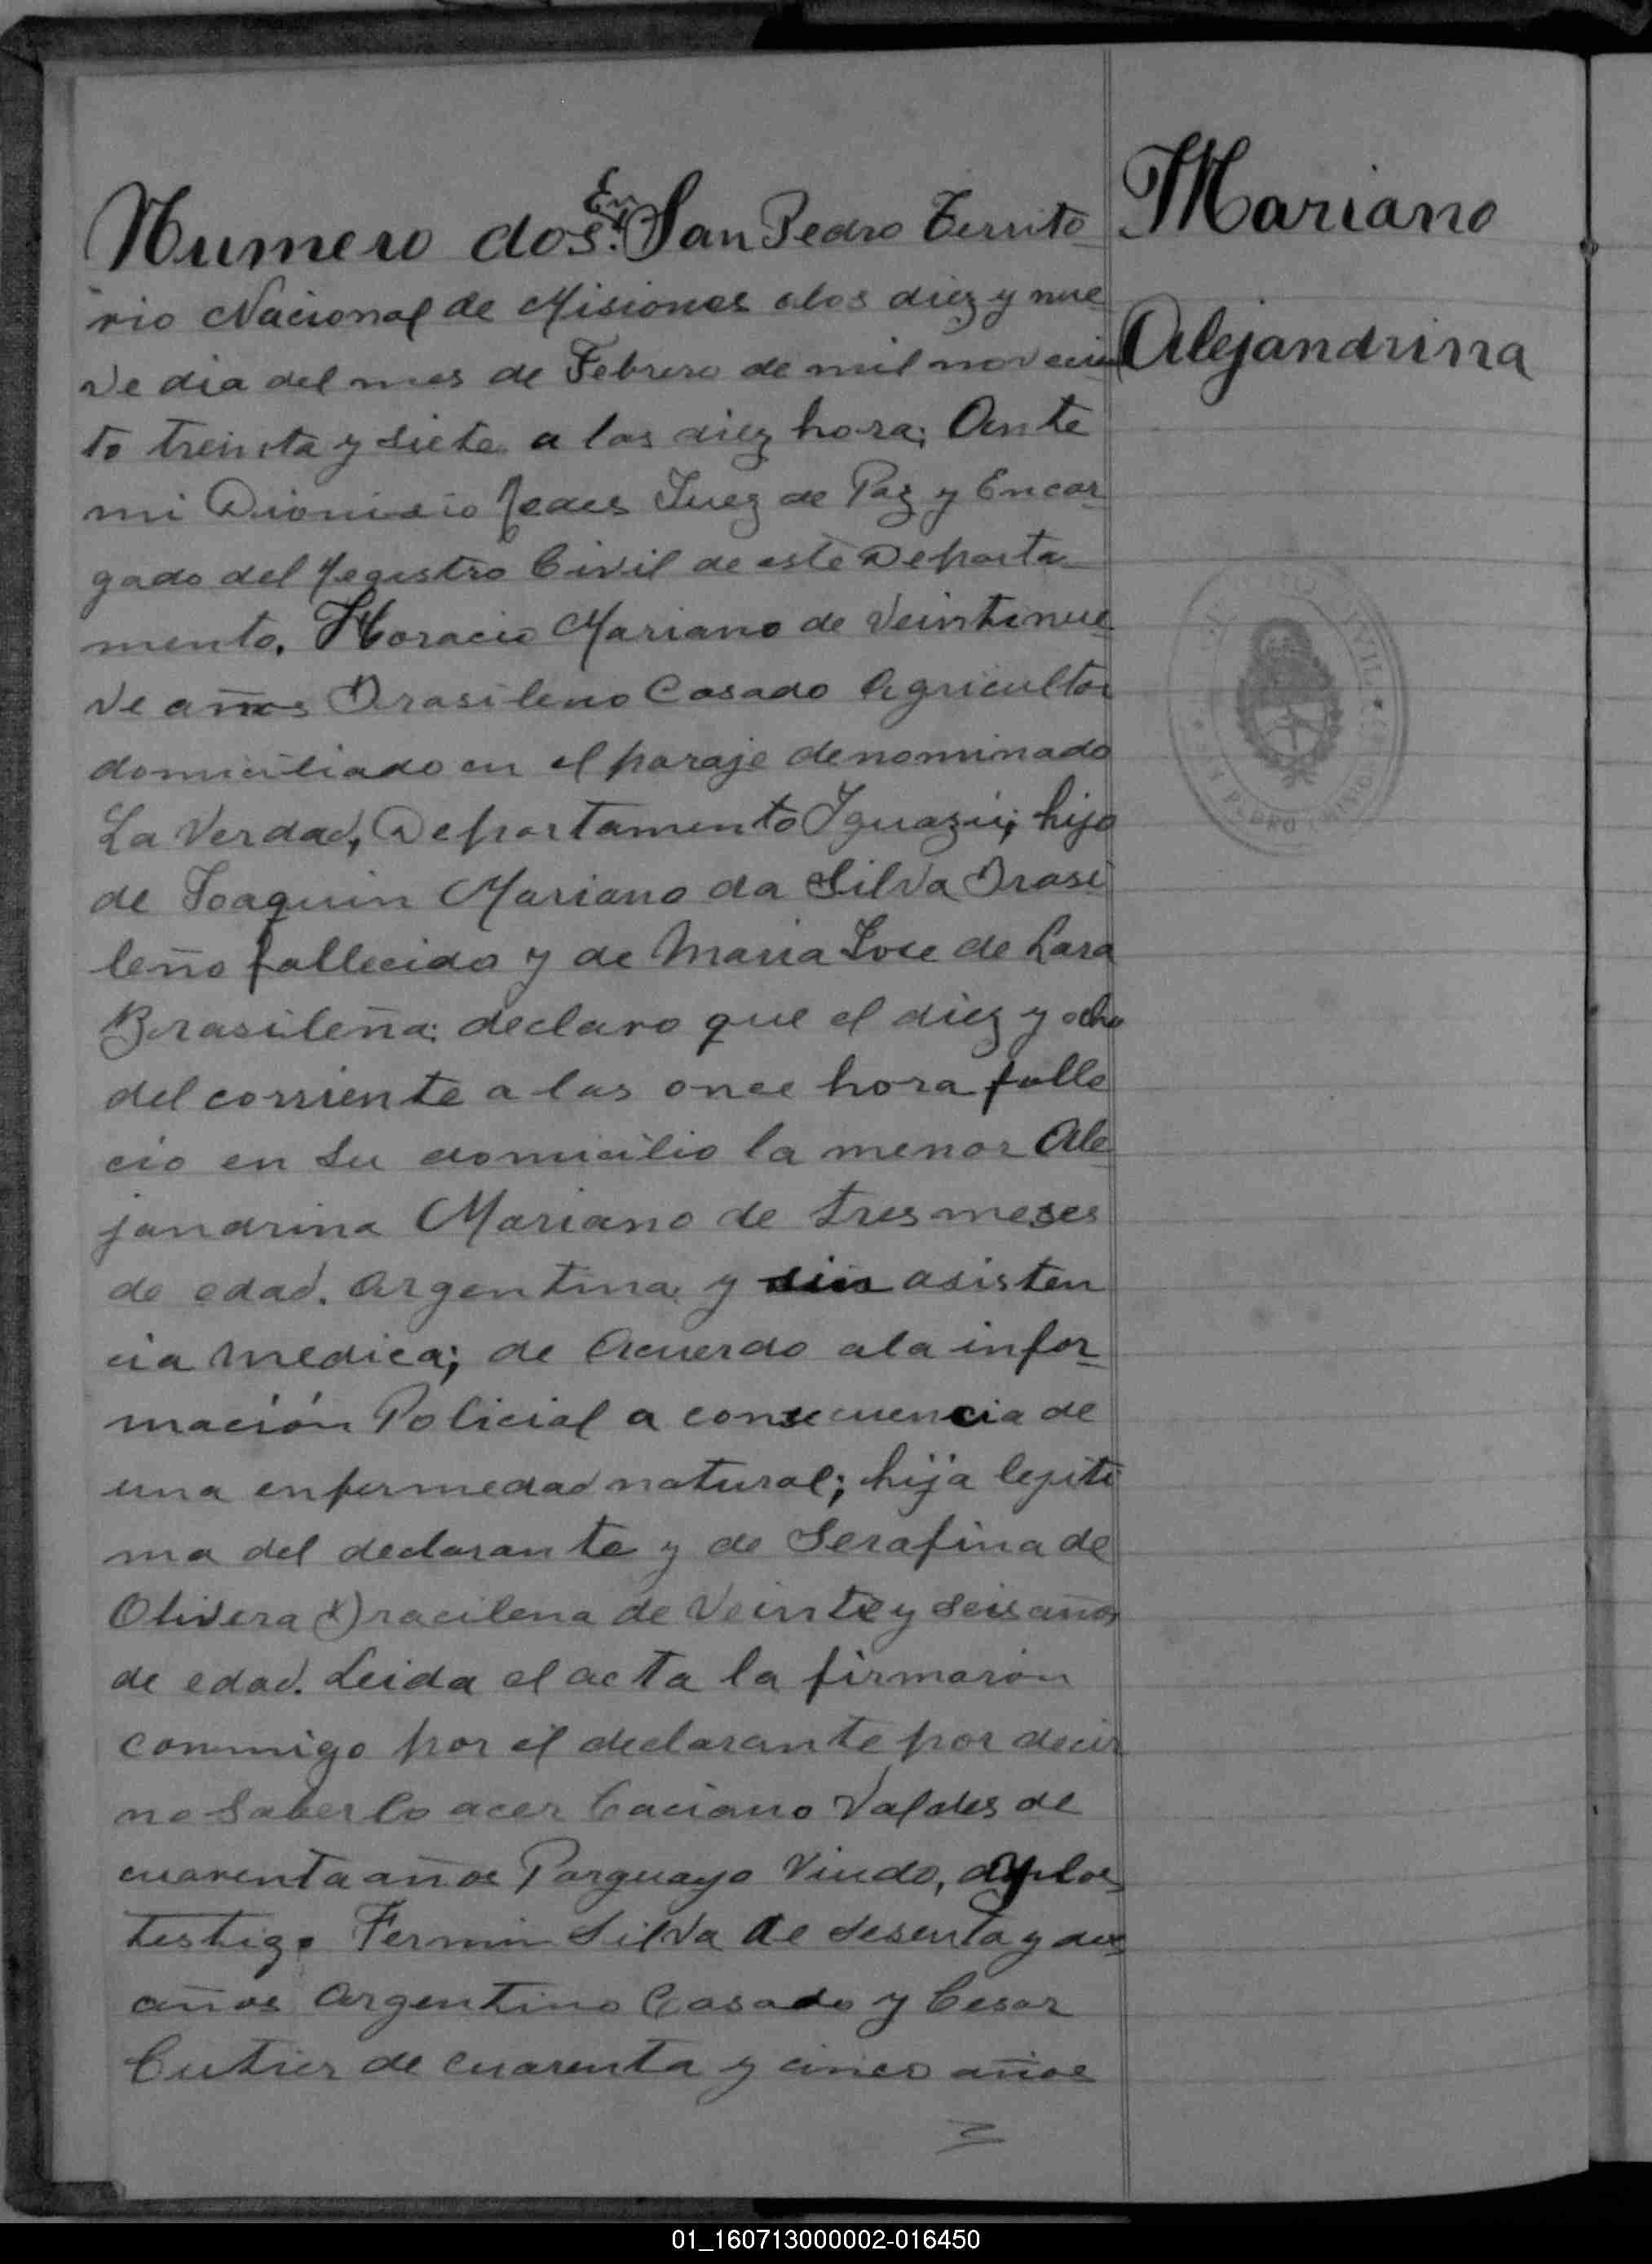 Numero dos. En San Pedro Territo
rio Nacional de Misiones alos diez y nue
ve dia del mes de Febrero de mil novecien
to treinta y siete a las diez hora; Ante
mi Dionisio Juez de Paz y Encar-
gado del Registro Civil de este Departa-
mento. Horacio Mariano de Veintinue
ve años Brasileno Casado Agricultor
domiciliado en el paraje denominado
La Verdad, Departamento Iguazú; hijo
de Joaquin Mariano da Silva Brasi
leño fallecido y de Maria Jose de Lara
Brasileña; declaro que el diez y ocho
del corriente a las once hora falle
cio en su domicilio la menor Ale
jandrina Mariano de tres meses
de edad. Argentina y sin asisten
cia medica; de Acuerdo ala infor-
mación Policial a consecuencia de
una enfermedad natural; hija legiti
ma del declarante y de Serafina de
Olivera Bracilena de Veinte y seis años
de edad. Leida el acta la firmaron
conmigo por el declarante por decir
no saberlo acer Caciano Valdes de
cuarenta años Parguayo Viudo, y los
testigo Fermin Silva de sesenta y dos
años Argentino Casado y Cesar
Cutier de cuarenta y cinco años
Mariano
Alejandrina
CIVIL
SAN PEDRO (MISIONES)
01_160713000002-016450